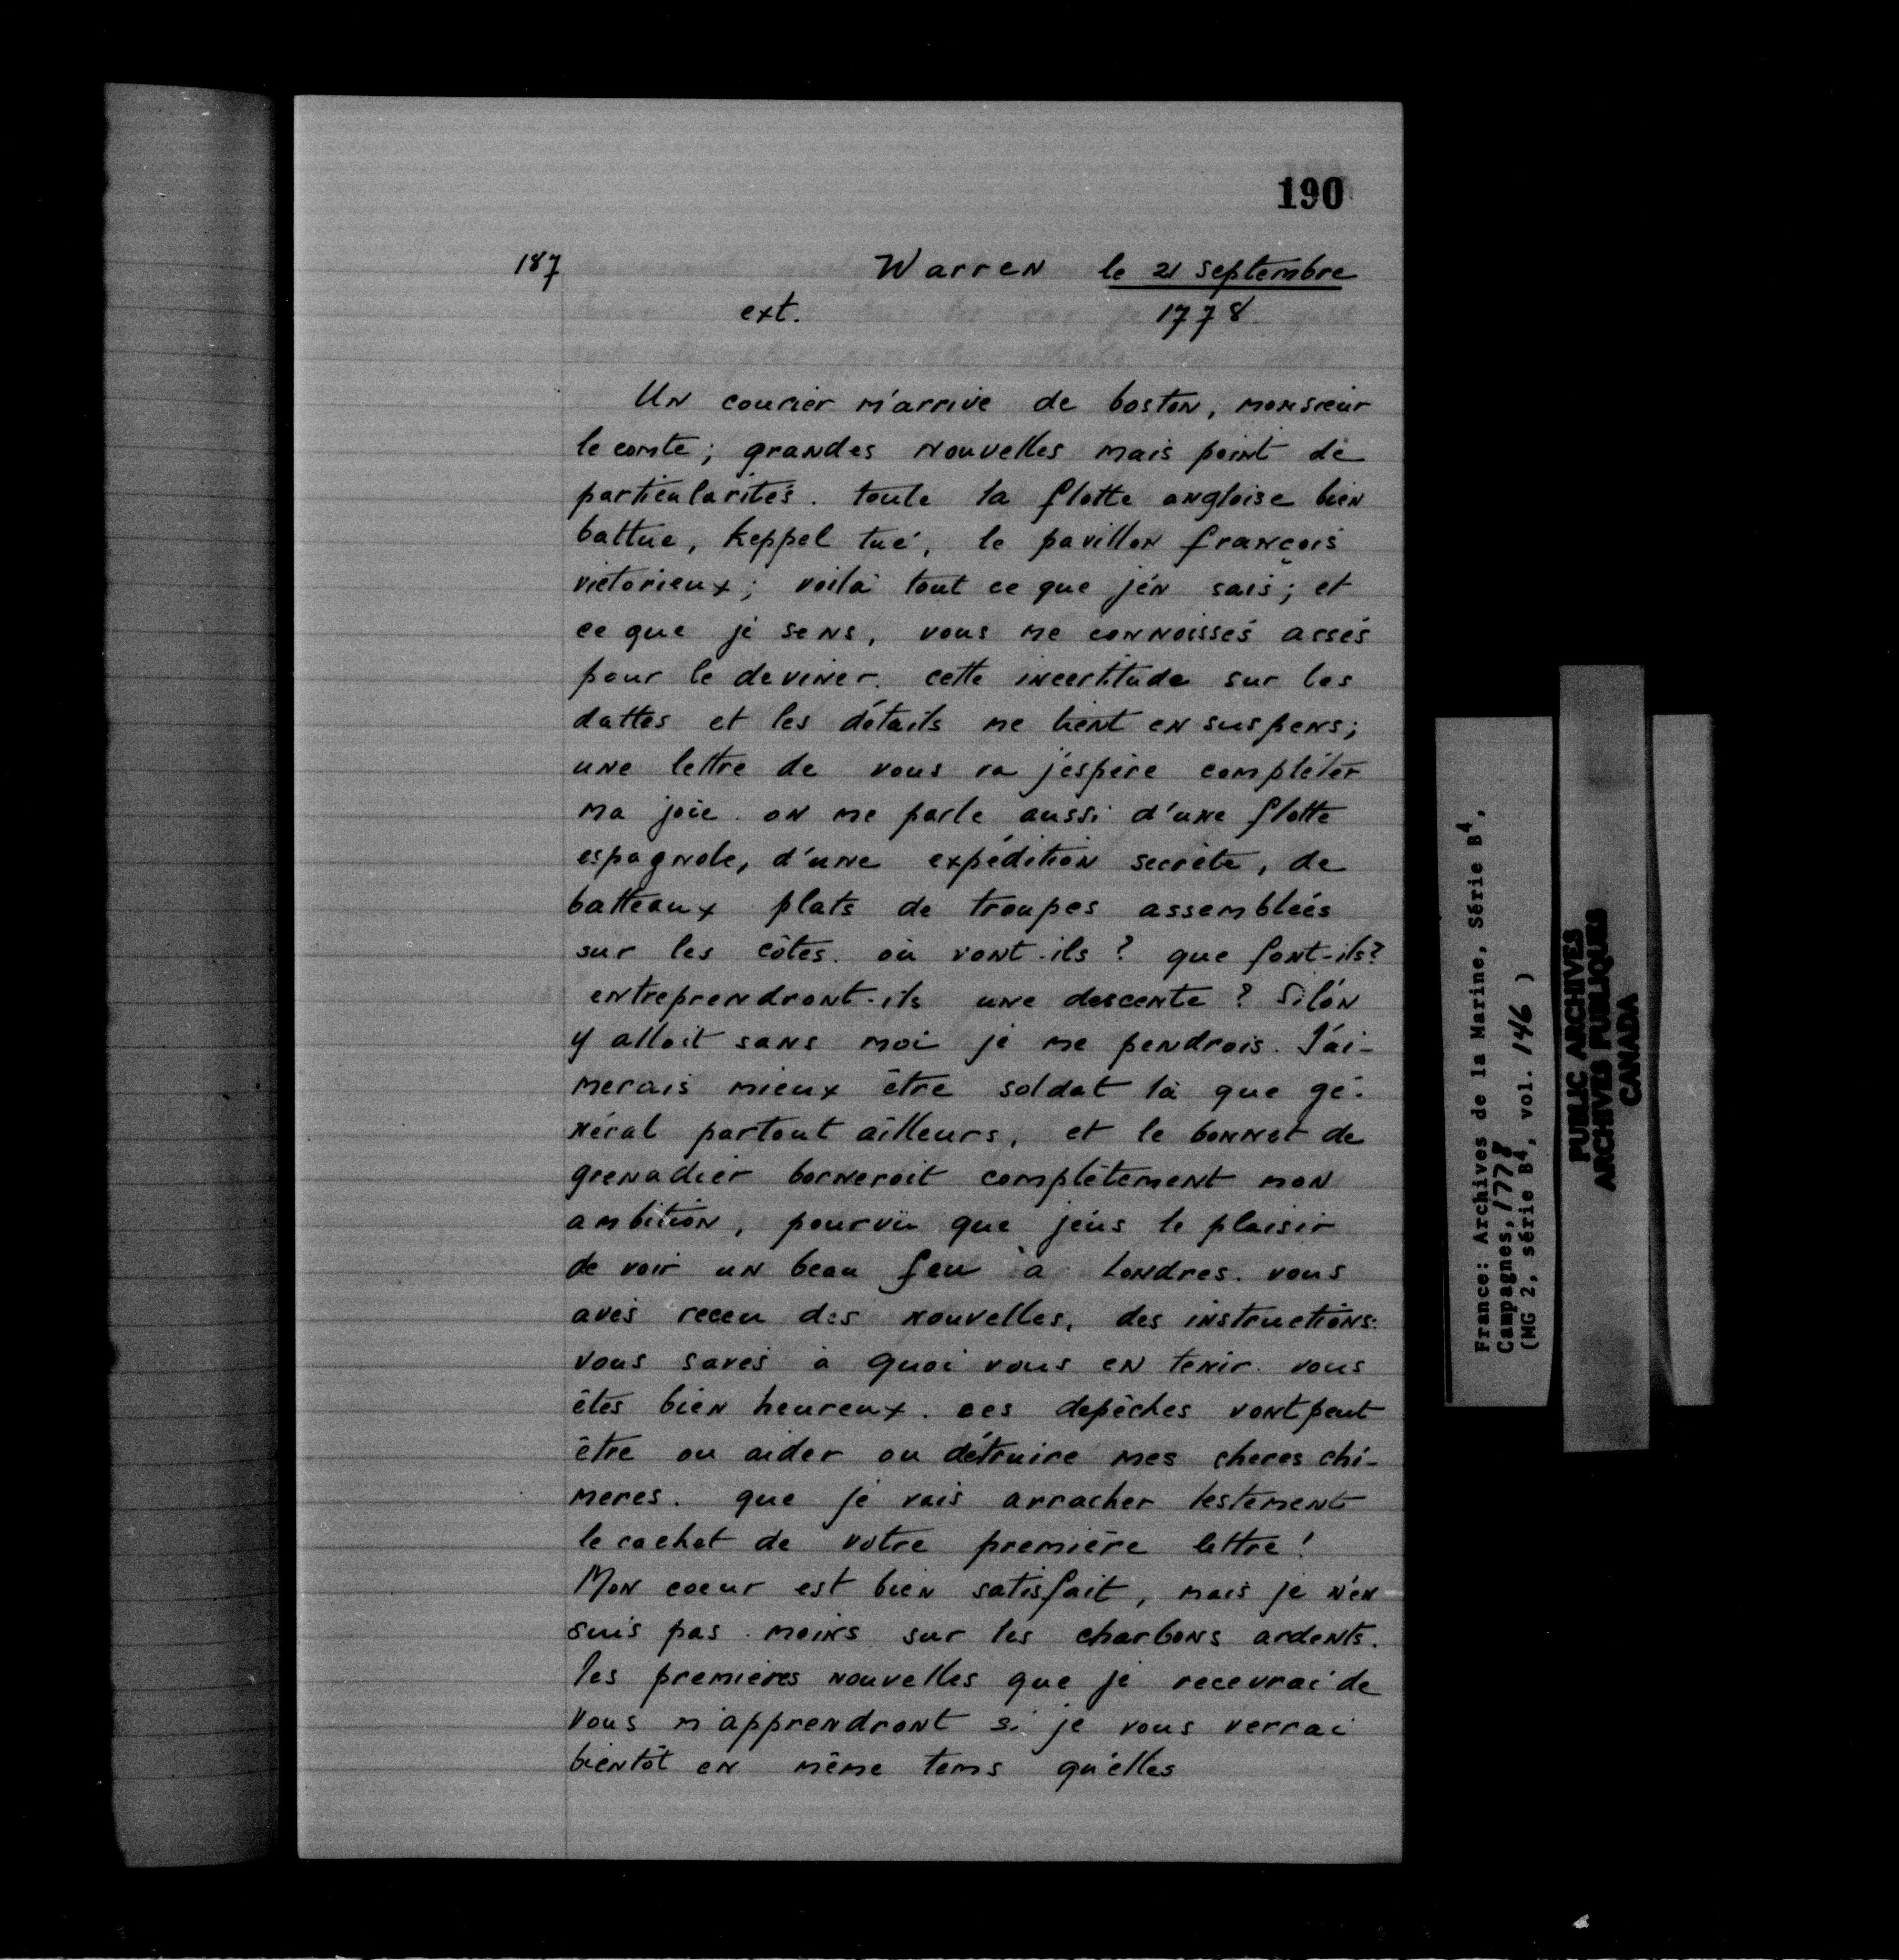 190
187 Warren le 21 septembre
ext. 1778
Un courier m'arrive de boston, monsieur
le comte; grandes nouvelles mais point de
particularités. toute la flotte angloise bien
battue, keppel tué, le pavillon françois
victorieux; voilà tout ce que j'én sais; et
ce que je sens, vous me connoissés assés
pour le deviner. cette incertitude sur les
dattes et les détails me tient en suspens;
une lettre de vous va j'espère compléter
ma joie. on me parle aussi d'une flotte
espagnole, d'une expédition secrète, de
batteaux plats de troupes assemblées
sur les côtes. où vont-ils? que font-ils?
entreprendront-ils une descente? Silón
y alloit sans moi je me pendrois. J'ai-
merais mieux être soldat là que gé-
néral partout ailleurs, et le bonnet de
grenadier borneroit complètement mon
ambition, pourvu que j'eus le plaisir
de voir un beau feu à Londres. vous
avés receu des nouvelles, des instructions:
vous savés à quoi vous en tenir. vous
êtes bien heureux. ces depêches vont peut
être ou aider ou détruire mes cheres chi-
meres. que je vais arracher lestement
le cachet de votre première lettre!
Mon coeur est bien satisfait, mais je n'en
suis pas moins sur les charbons ardents.
les premières nouvelles que je recevrai de
vous m'apprendront si je vous verrai
bientôt en même tems qu'elles
France: Archives de la Marine, Série B4,
Campagnes, 1778
(MG 2, série B4, vol. 146 )
PUBLIC ARCHIVES
ARCHIVES PUBLIQUES
CANADA